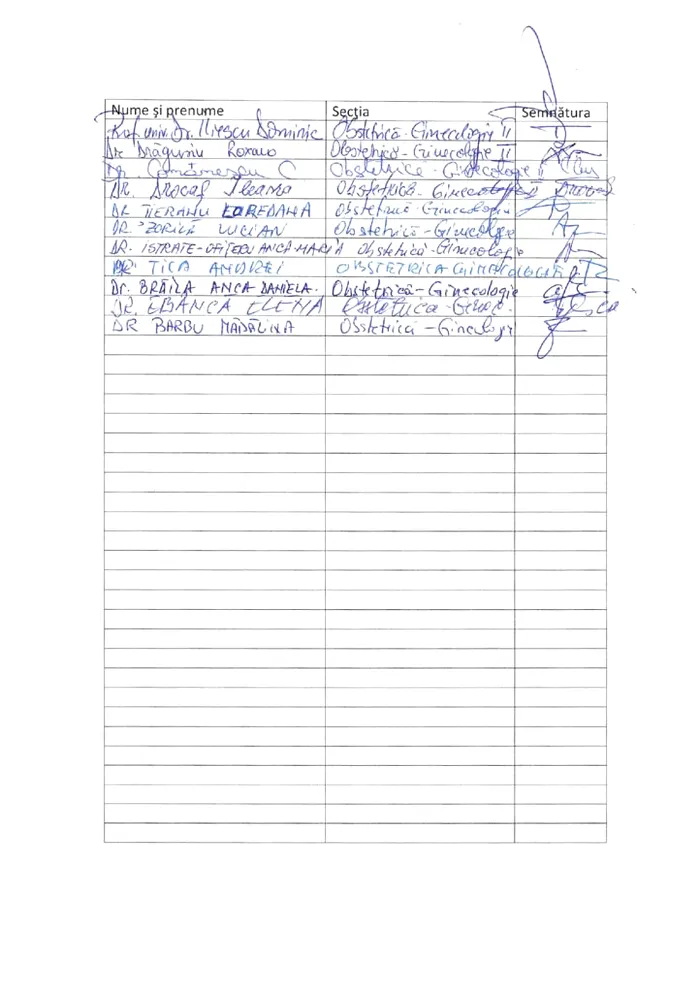 Nume și prenume Secția Semnătura
Prof. univ. Dr. Iliescu Dominic Obstetrică-Ginecologie II
Dr Drăgușin Roxana Obstetrică-Ginecologie II
Dr. Comănescu C Obstetrică-Ginecologie II
DR. Drocaș Ileana Obstetrică-Ginecologie II
DR TIERANU LOREDANA Obstetrică Ginecologie
DR ZORILĂ LUCIAN Obstetrică-Ginecologie
DR. ISTRATE-OFIȚERU ANCA-MARIA Obstetrică-Ginecologie
DR. TICA ANDREI OBSTETRICA GINECOLOGIE
Dr. BRĂILA ANCA DANIELA. Obstetrică-Ginecologie
DR. SBANCA ELENA Obstetrica-Ginec.
DR BARBU MĂDĂLINA Obstetrică-Ginecologi